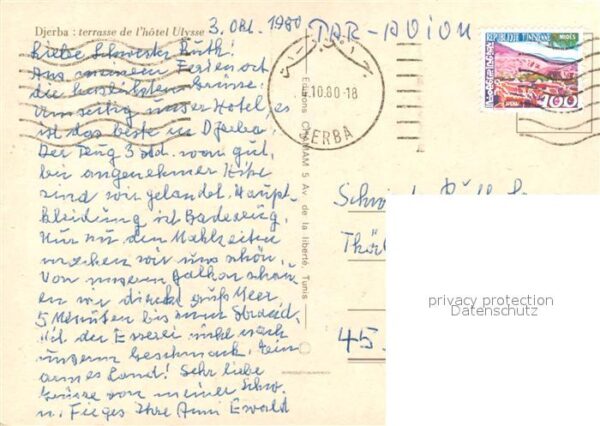 Djerba : terrasse de l'hôtel Ulysse
3. Okt. 1980
PAR-AVION
REPUBLIQUE TUNISIENNE
MIDES
100
.10.80-18
DJERBA
Editions CHAMAM 5 Av. de la liberté. Tunis
Liebe Schwester Ruth!
Aus meinem Ferienort
die herzlichsten Grüsse.
Umseitig unser Hotel, es
ist das beste in Djerba.
Der Flug 3 std. war gut,
bei angenehmer Hitze
sind wir gelandet. Haupt-
kleidung ist Badezeug.
Nur zu den Mahlzeiten
machen wir uns schön.
Von unserm Balkon schau-
en wir direkt aufs Meer
5 Minuten bis zum Strand.
der Esserei nicht nach
unserm Geschmack. Sein
armes Land! Sehr liebe
Grüsse von meiner Schw.
u. Ihre Anni Ewald
45.
privacy protection
Datenschutz